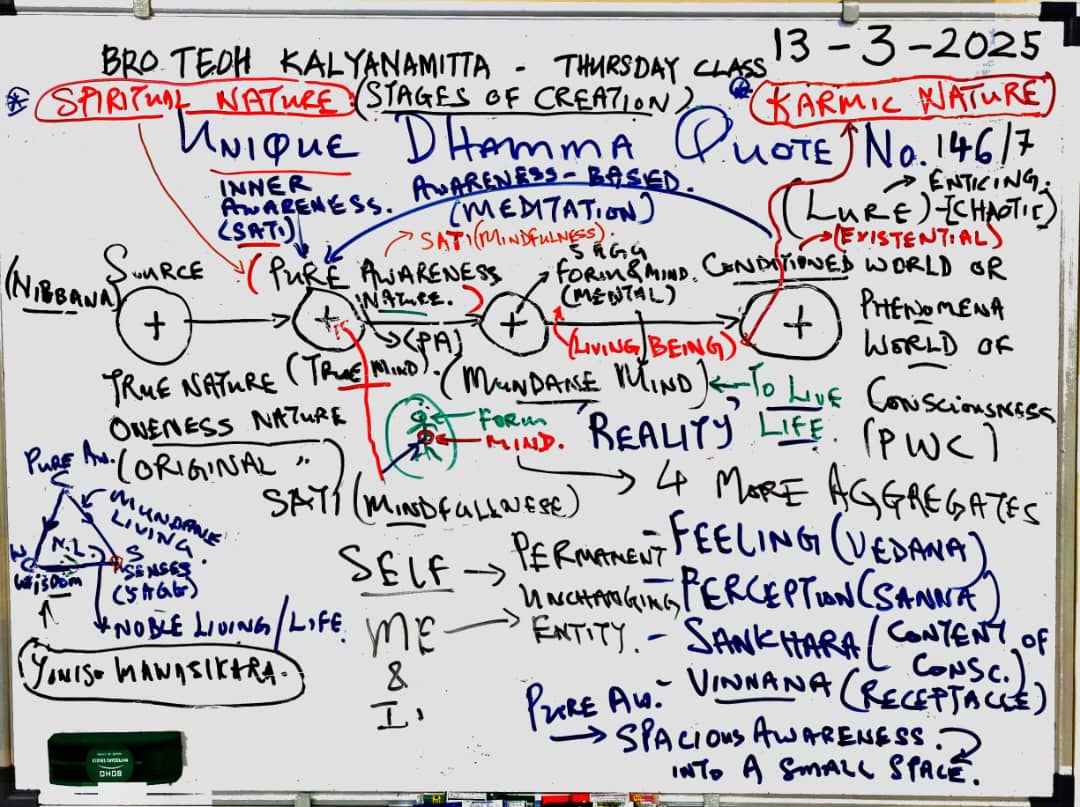 13-3-2025
BRO TEOH KALYANAMITTA - THURSDAY CLASS
SPIRITUAL NATURE (STAGES OF CREATION)
KARMIC NATURE
UNIQUE DHAMMA QUOTE No. 146/7
INNER
AWARENESS.
(SATI)
AWARENESS-BASED.
(MEDITATION)
ENTICING.
(LURE)-[CHAOTIC]
(EXISTENTIAL)
SATI (MINDFULNESS).
(NIBBANA)
SOURCE
(PURE AWARENESS
NATURE.)
5 AGG
FORM & MIND.
(MENTAL)
CONDITIONED WORLD OR
PHENOMENA
WORLD OF
CONSCIOUSNESS
(PWC)
+
+
+
+
(PA)
(LIVING BEING)
TRUE NATURE
(TRUE MIND).
(MUNDANE MIND)
TO LIVE
LIFE.
ONENESS NATURE
(ORIGINAL ")
FORM
MIND.
'REALITY'
4 MORE AGGREGATES
SATI (MINDFULLNESS)
PURE AW.
C
MUNDANE
LIVING
N.L.
S
SENSES
(5AGG)
WISDOM
NOBLE LIVING / LIFE.
YONISO MANASIKARA.
SELF → PERMANENT
UNCHANGING
ME → ENTITY.
&
I,
- FEELING (VEDANA)
- PERCEPTION (SANNA)
- SANKHARA (CONTENT OF
CONSC.)
- VINNANA (RECEPTACLE)
PURE AW.
→ SPACIOUS AWARENESS.
INTO A SMALL SPACE.